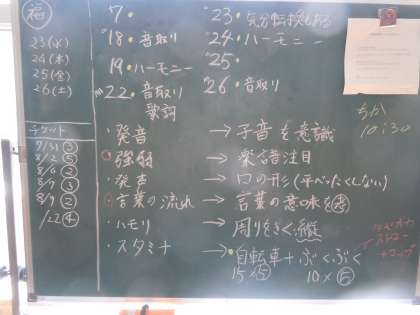 23(水)
24(木)
25(金)
26(土)
チケット
7/31 ③
8/2 ⑤
8/6 ②
8/7 ③
8/9 ②
/22 ④
7・
18・音取り
19・ハーモニー
22・音取り
歌詞
23・気分転換もある
24・ハーモニー
25・
26・音取り
10:30
・発音 → 子音を意識
・強弱 → 楽譜注目
・発声 → 口の形(平べったくしない)
・言葉の流れ → 言葉の意味を考
・ハモリ → 周りをきく
・スタミナ → ・自転車+ぶくぶく
15×⑤ 10×⑤